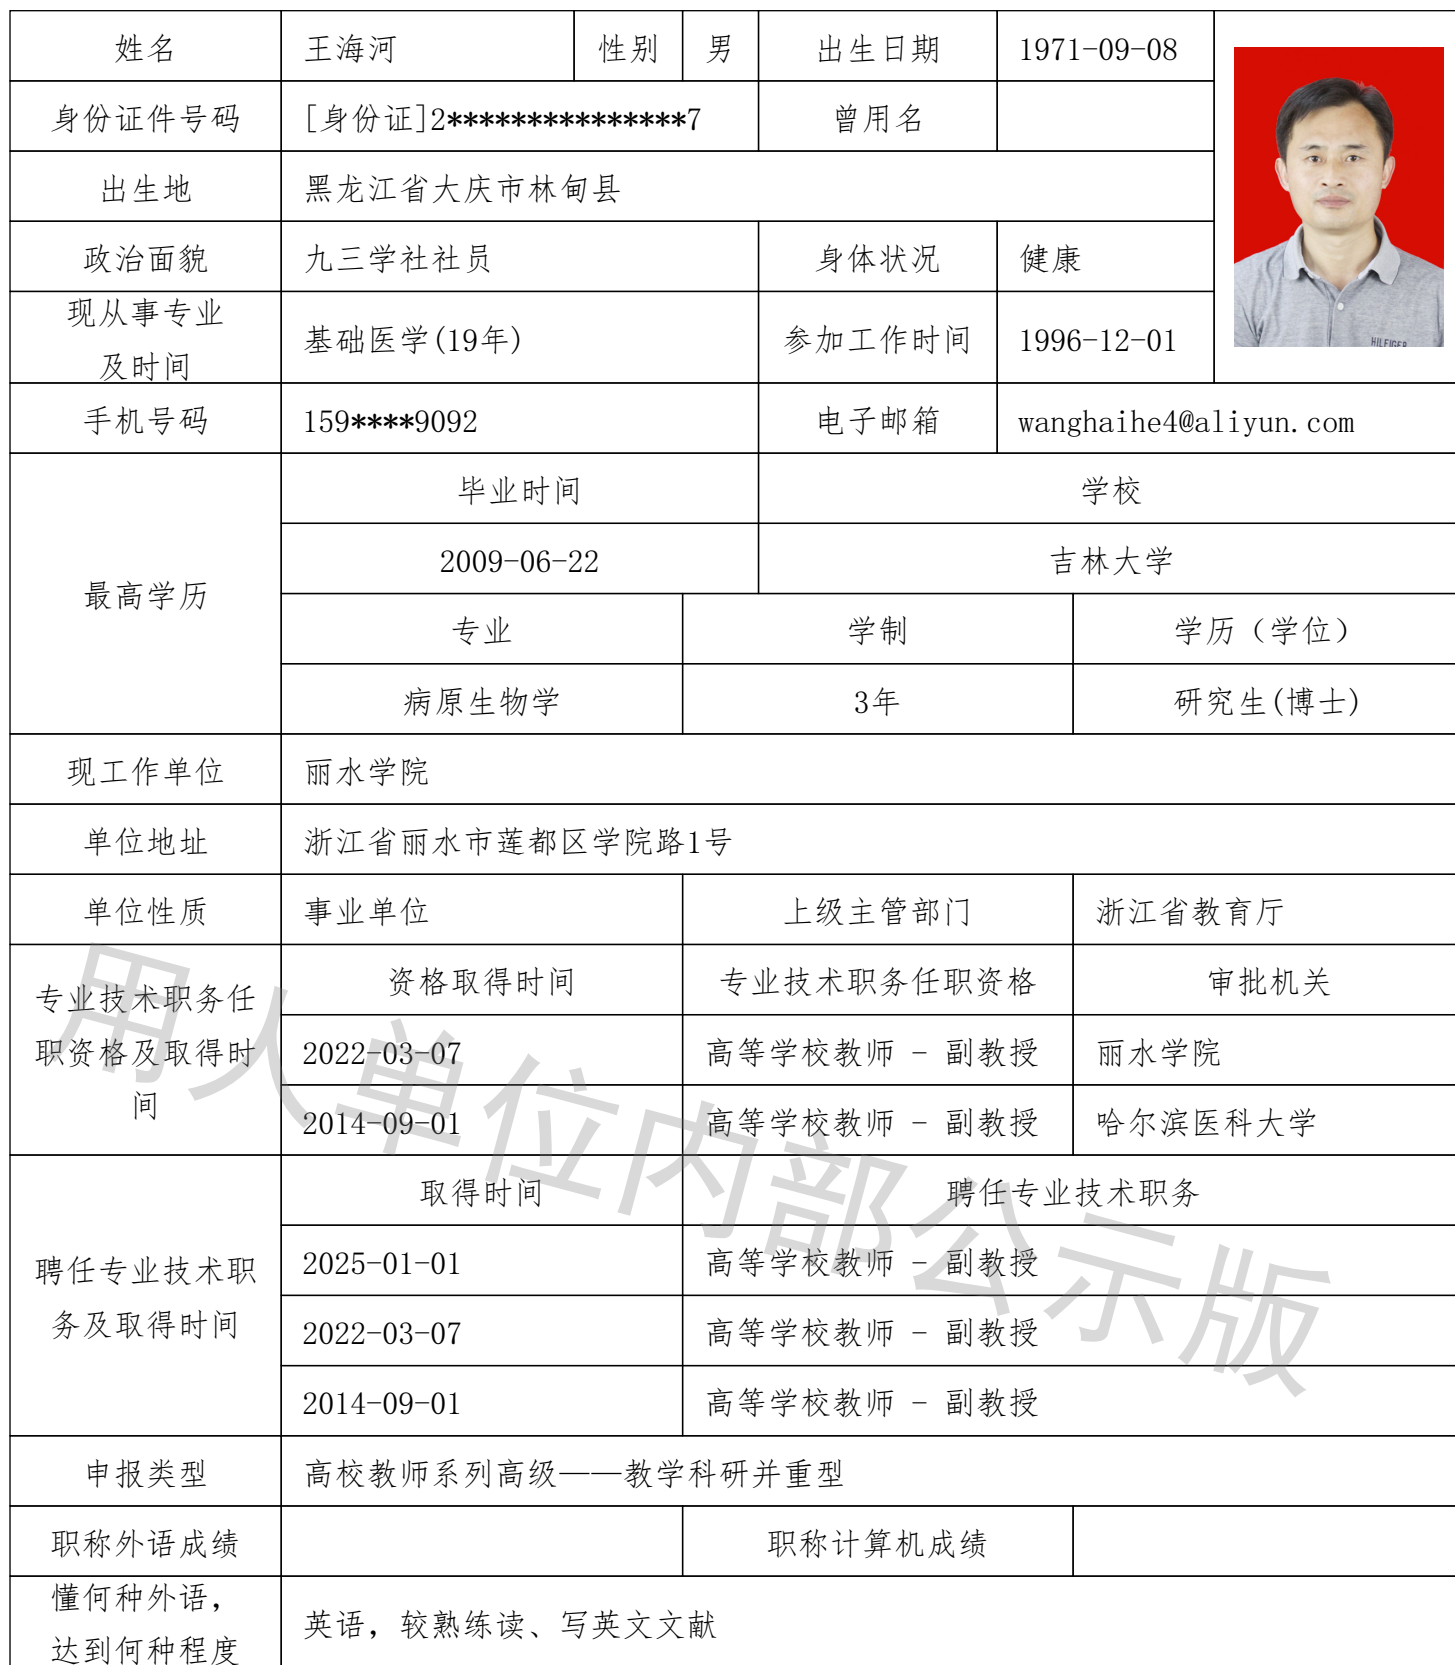 姓名 王海河 性别 男 出生日期 1971-09-08
身份证件号码 [身份证]2***************7 曾用名
出生地 黑龙江省大庆市林甸县
政治面貌 九三学社社员 身体状况 健康
现从事专业
及时间 基础医学(19年) 参加工作时间 1996-12-01
HILFIGER
手机号码 159****9092 电子邮箱 wanghaihe4@aliyun.com
最高学历
毕业时间 学校
2009-06-22 吉林大学
专业 学制 学历（学位）
病原生物学 3年 研究生(博士)
现工作单位 丽水学院
单位地址 浙江省丽水市莲都区学院路1号
单位性质 事业单位 上级主管部门 浙江省教育厅
专业技术职务任
职资格及取得时
间
资格取得时间 专业技术职务任职资格 审批机关
2022-03-07 高等学校教师 - 副教授 丽水学院
2014-09-01 高等学校教师 - 副教授 哈尔滨医科大学
聘任专业技术职
务及取得时间
取得时间 聘任专业技术职务
2025-01-01 高等学校教师 - 副教授
2022-03-07 高等学校教师 - 副教授
2014-09-01 高等学校教师 - 副教授
申报类型 高校教师系列高级——教学科研并重型
职称外语成绩 职称计算机成绩
懂何种外语，
达到何种程度 英语，较熟练读、写英文文献
用人单位内部公示版